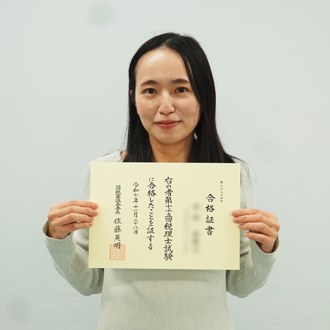 合格証書
右の者第七十五回税理士試験
に合格したことを証する
令和七年十一月二十八日
国税審議会会長 佐藤英明